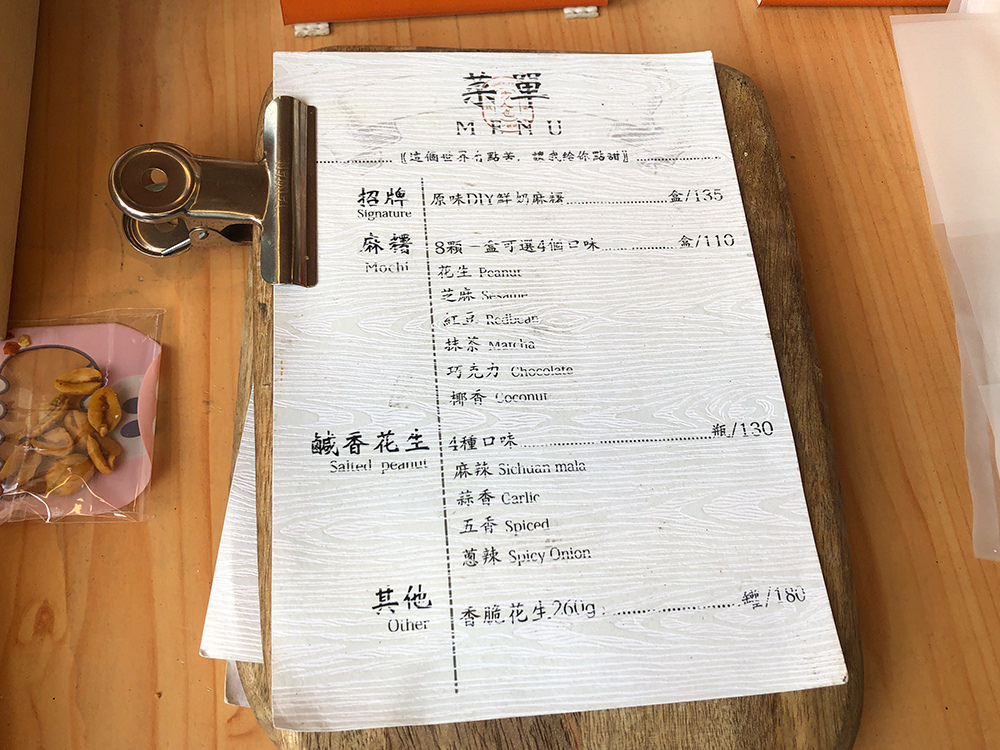 菜單
MENU
〖這個世界有點苦，讓我給你點甜〗
招牌 原味DIY鮮奶麻糬 盒/135
Signature
麻糬 8顆一盒可選4個口味 盒/110
Mochi
花生 Peanut
芝麻 Sesame
紅豆 Redbean
抹茶 Matcha
巧克力 Chocolate
椰香 Coconut
鹹香花生 4種口味 瓶/130
Salted peanut
麻辣 Sichuan mala
蒜香 Garlic
五香 Spiced
蔥辣 Spicy Onion
其他 香脆花生260g 罐/180
Other